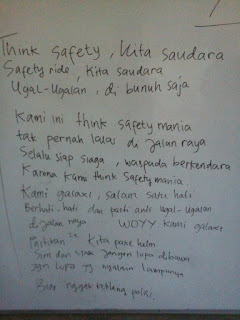 Think safety, Kita saudara
Safety ride, Kita saudara
Ugal-Ugalan, di bunuh saja
Kami ini think safety mania
tak pernah lalai di jalan raya
Selalu siap siaga, waspada berkendara
Karena kami think safety mania
Kami galaxi, salam satu hati
Berhati-hati dan pasti anti ugal-ugalan
di jalan raya WOYY kami galaxi
Pastikan Kita pake helm
Sim dan stnk jangan lupa dibawa
jgn lupa yg nyalain lampunya
Biar nggak